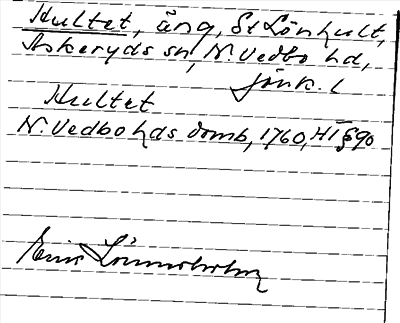 Hultet, äng, St Lönhult,
Askeryds sn, N. Vedbo hd,
Jönk. l
Hultet
N. Vedbo hds domb, 1760, HT § 90